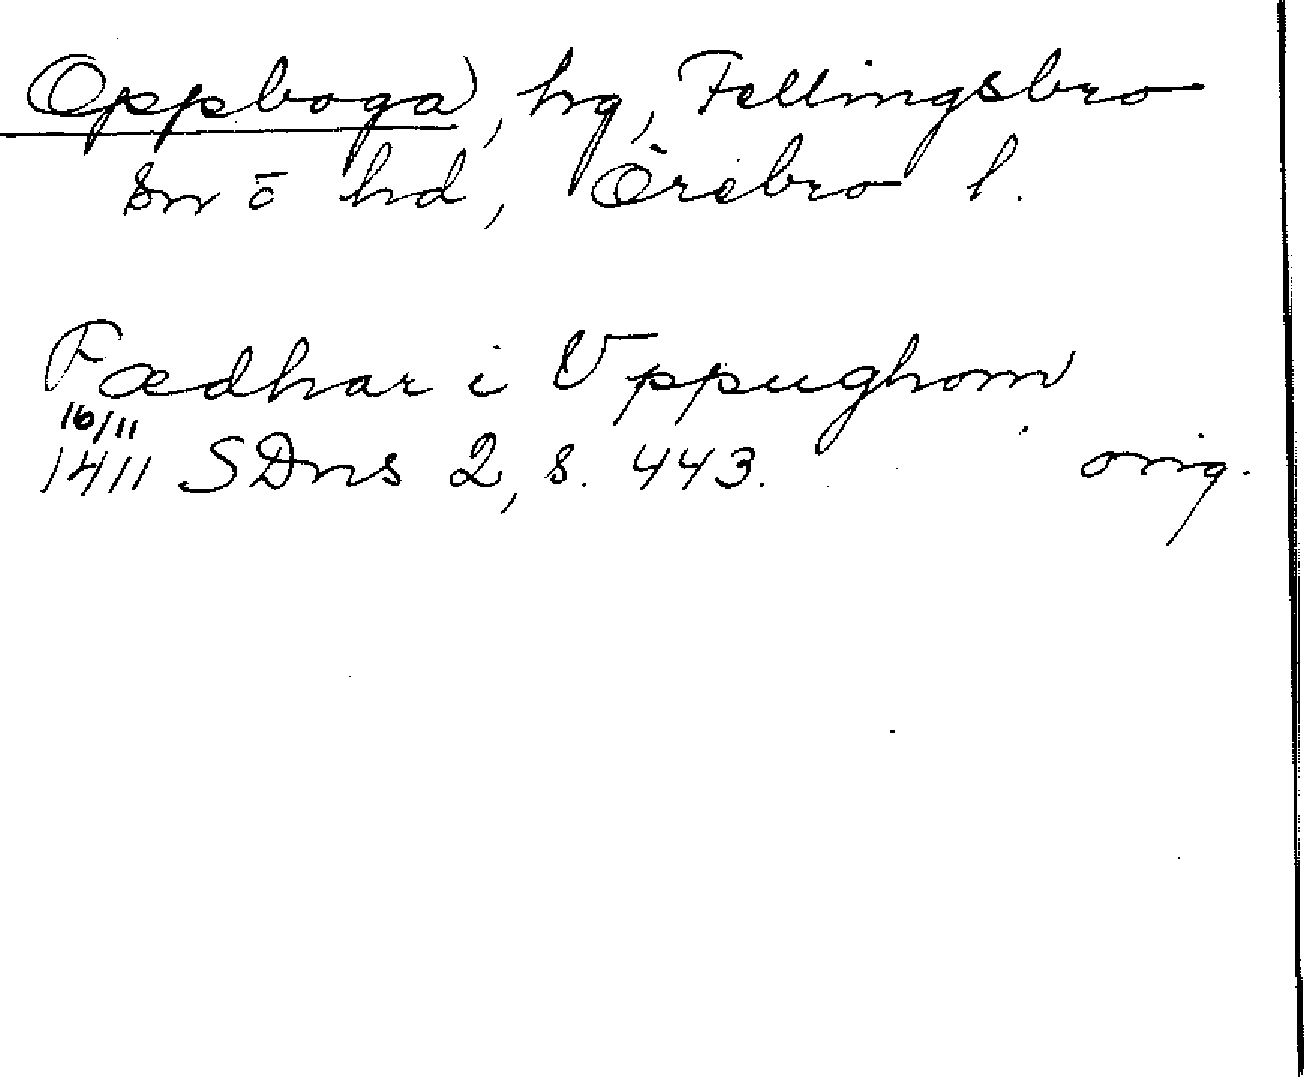 Oppboga, hg, Fellingsbro
sn ō hd, Örebro l.
Fædhar i Vppughom
16/11
1411 SDns 2, s. 443. orig.